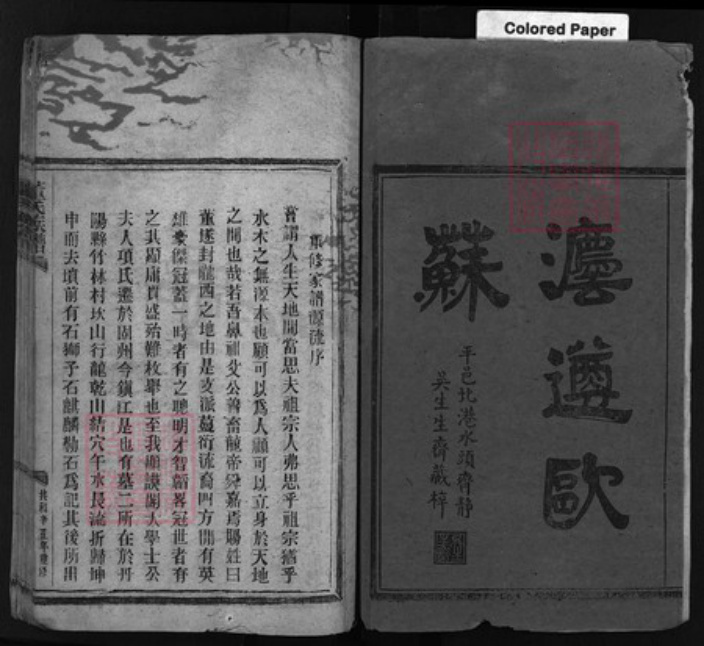 Colored Paper
遵歐
蘇
平邑北港水頭齊靜
吳生生齋藏梓
修家譜源流序
嘗謂人生天地間當思夫祖宗人弗思乎祖宗猶乎
水木之無源本也顧可以爲人顧可以立身於天地
之間也哉若吾鼻祖父公善畜龍帝舜嘉焉賜姓曰
董遂封隴西之地由是支派蔓衍流裔四方間有英
雄豪傑冠蓋一時者有之聰明才智韜畧冠世者有
之其顯庸貴盛殆難枚舉也至我謨閣大學士公
夫人項氏遷於潤州今鎮江是也有墓二所在於丹
陽縣竹林村坎山行龍乾山結穴午水長流折歸坤
申而去墳前有石獅子石麒麟勒石爲記其後所出